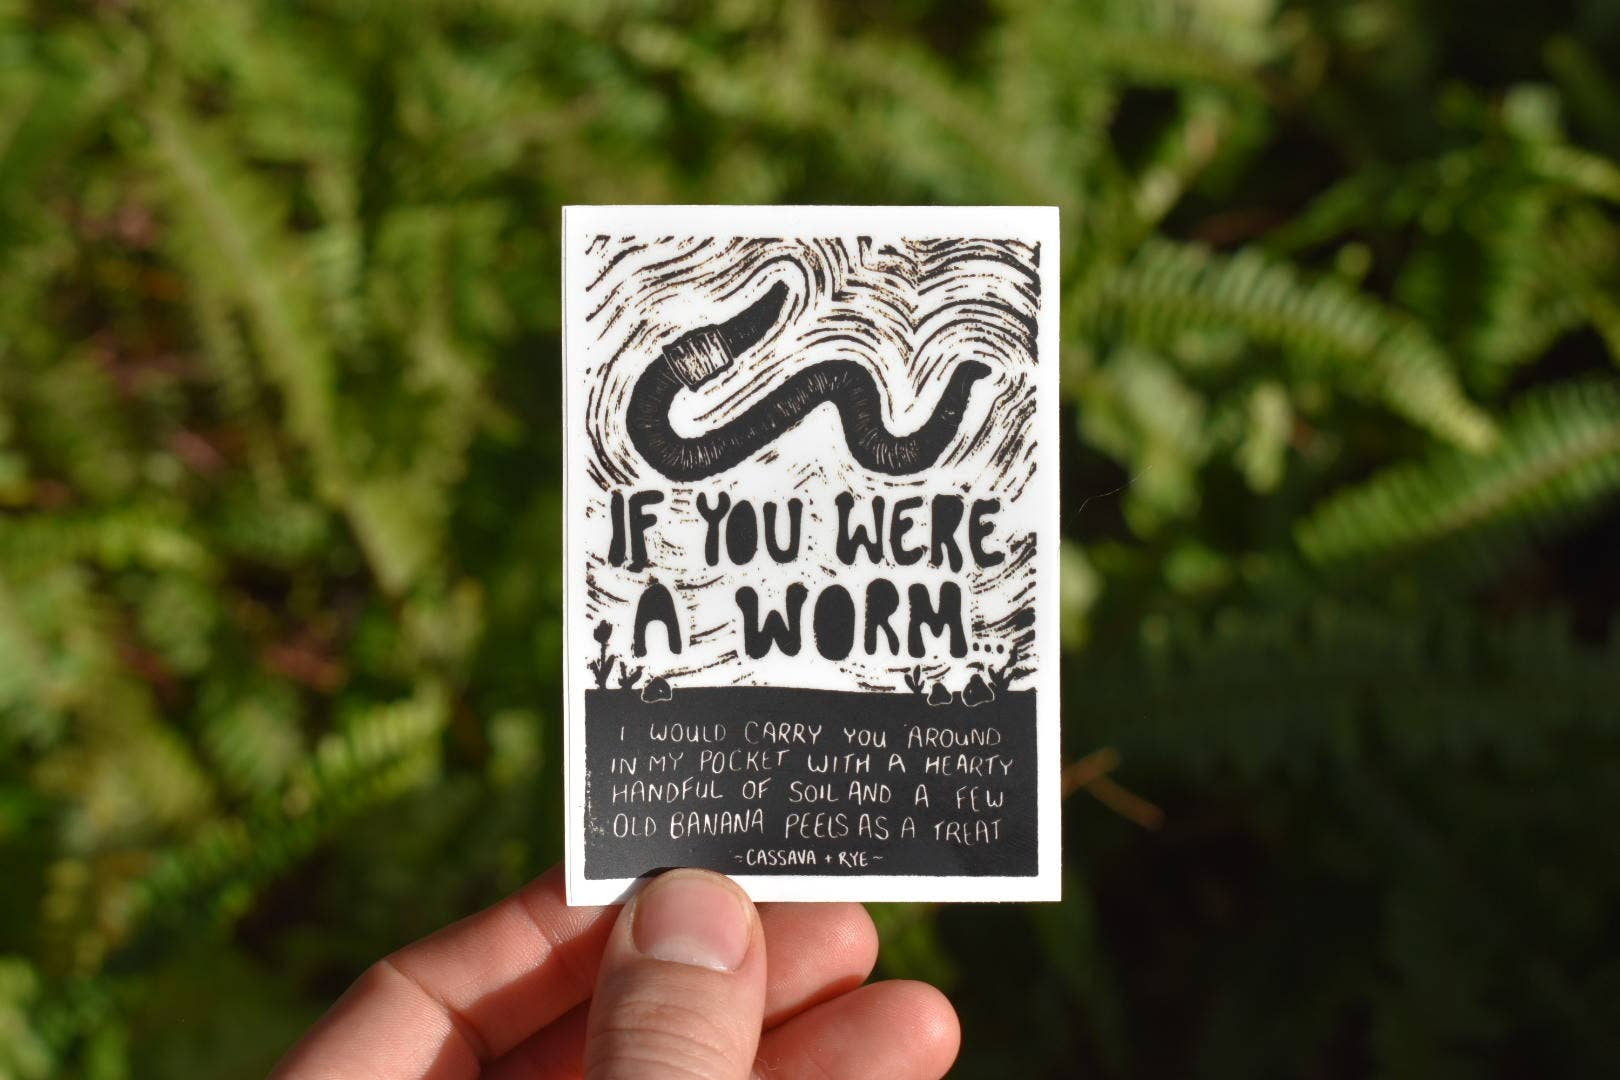 IF YOU WERE
A WORM...
I WOULD CARRY YOU AROUND
IN MY POCKET WITH A HEARTY
HANDFUL OF SOIL AND A FEW
OLD BANANA PEELS AS A TREAT
~CASSAVA + RYE~